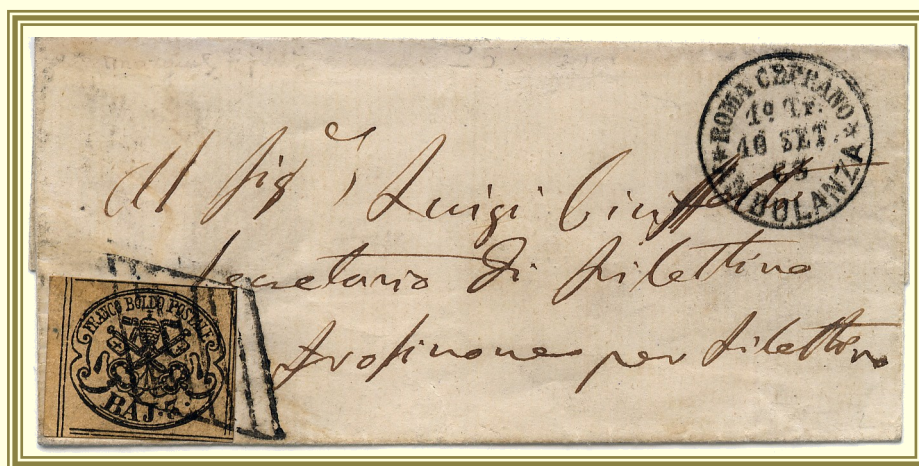 ROMA CEPRANO
1º Tr.
16 SET.
63
AMBULANZA
Al Sigr Luigi
Secretario di Filettino
Frosinone per Filettino
FRANCO BOLLO POSTALE
BAJ. 3.